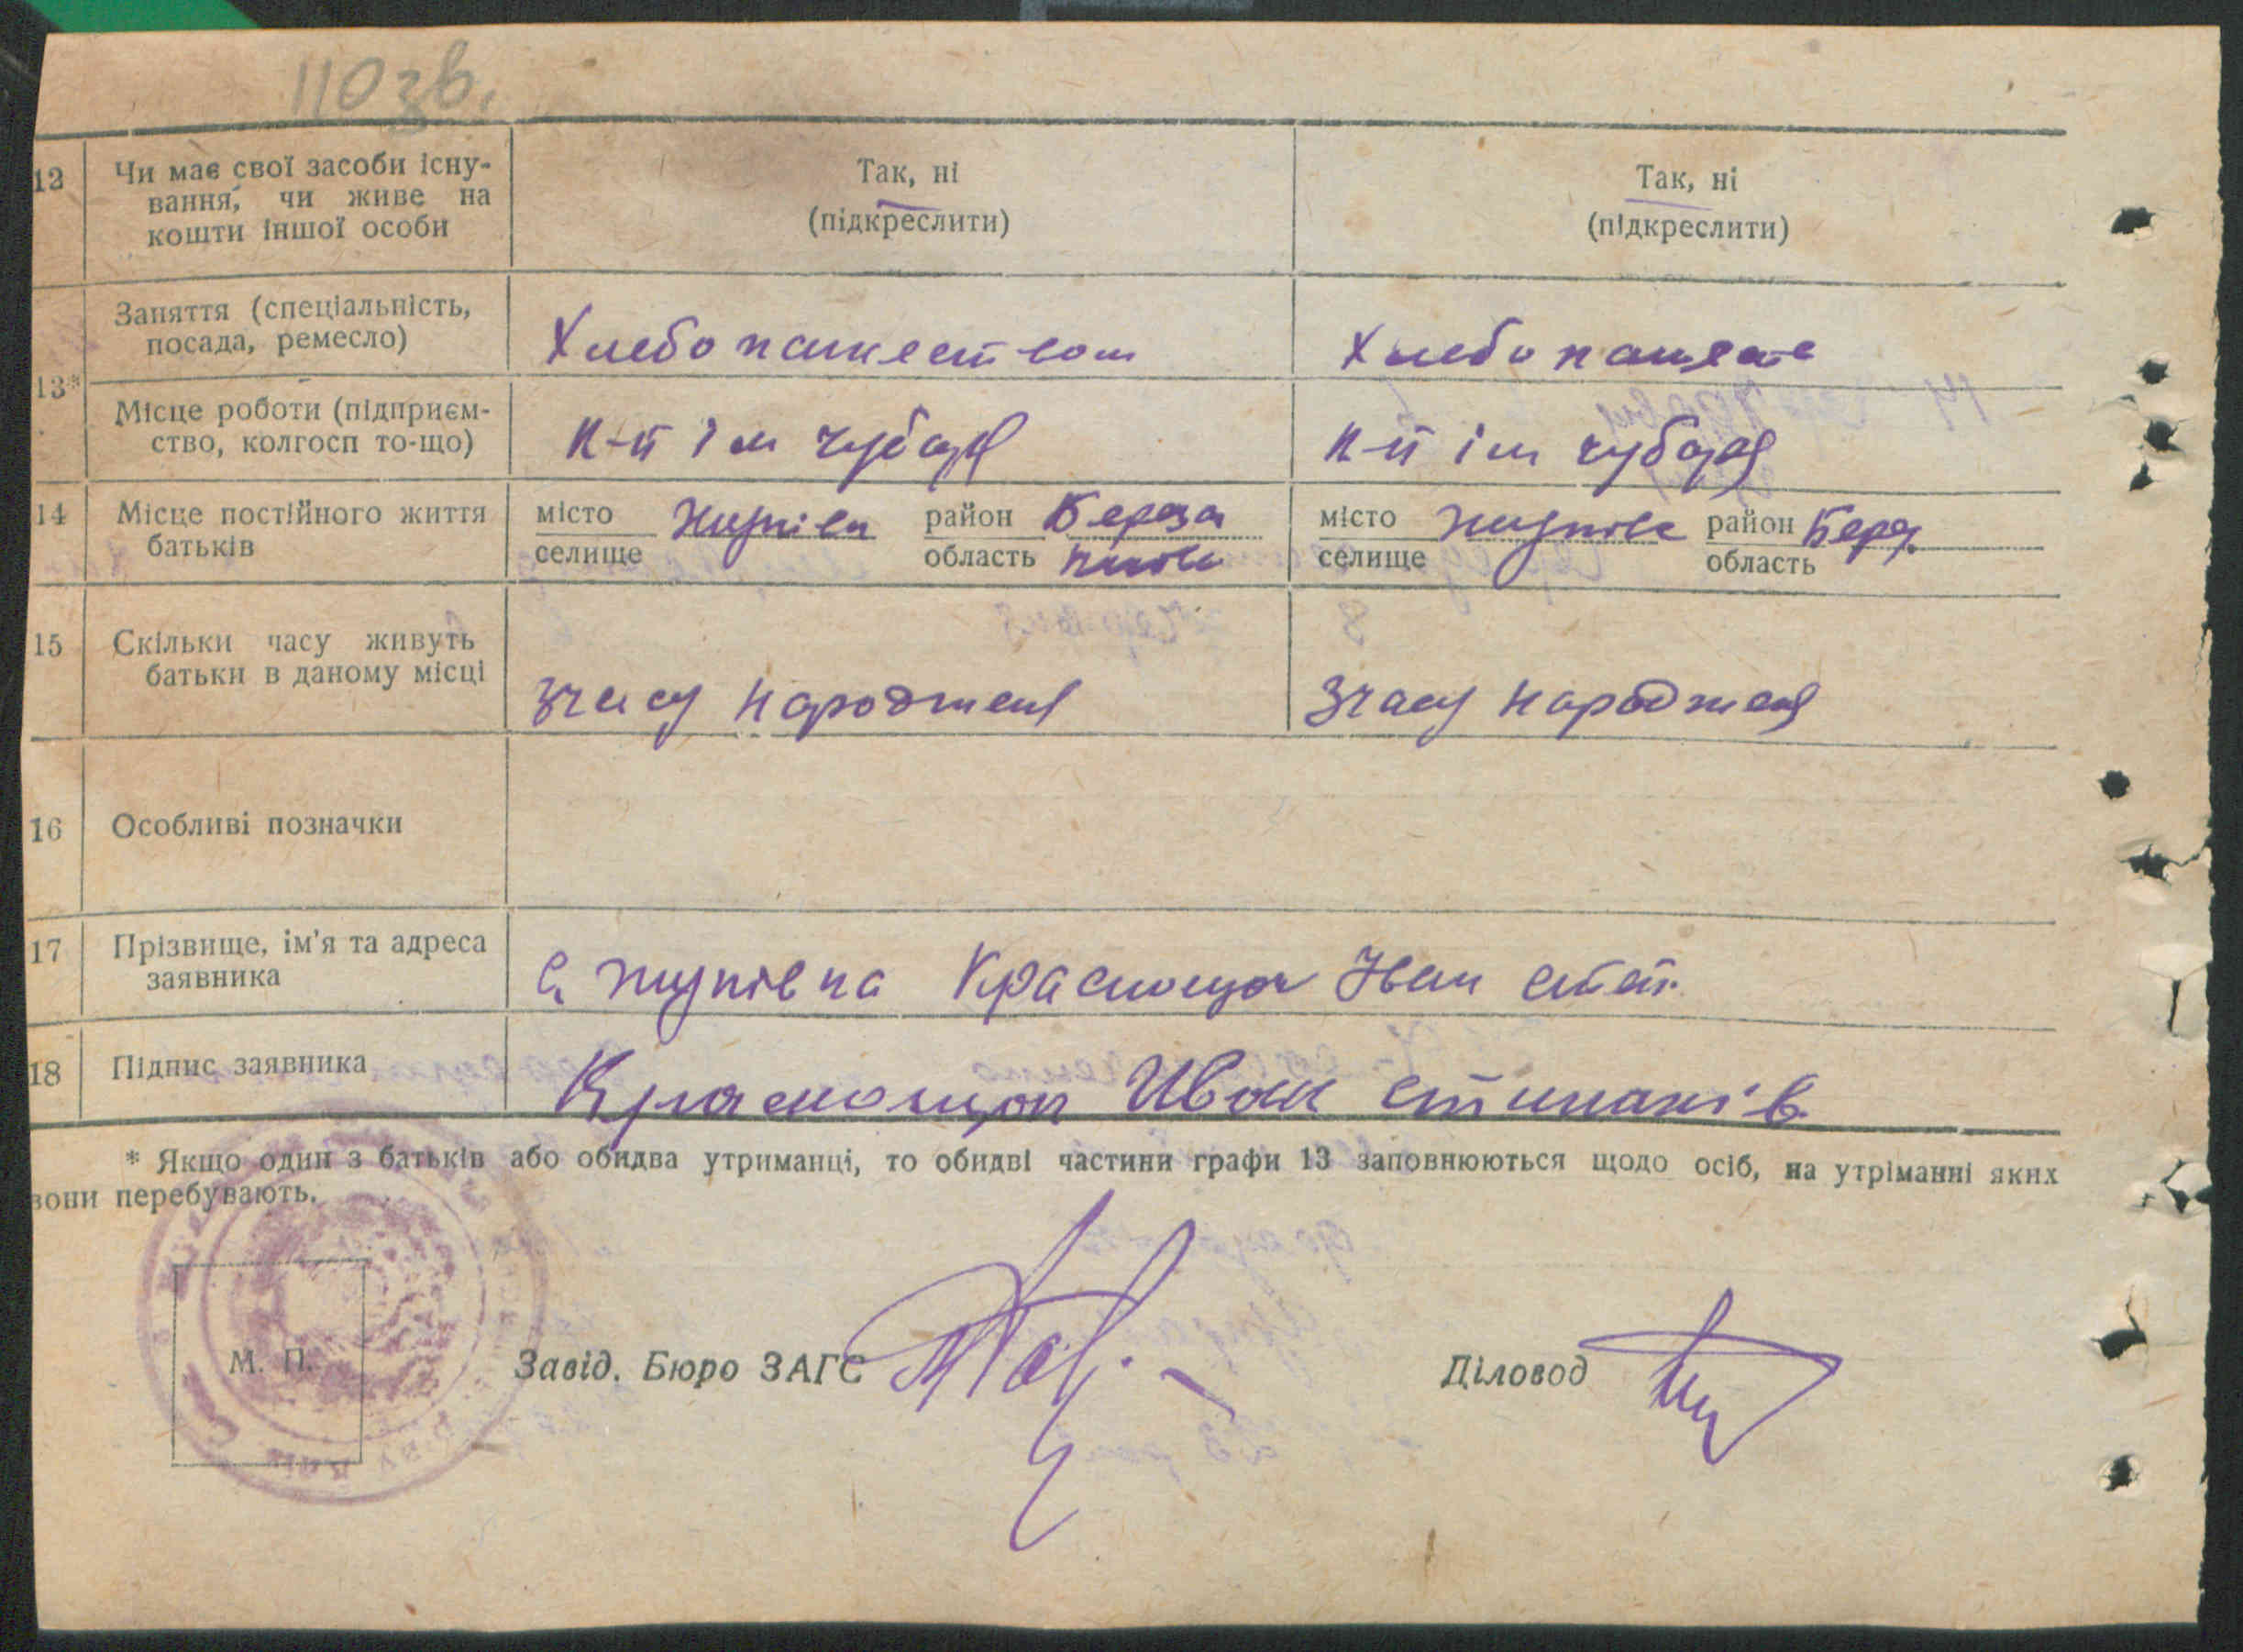 110 зв.
12 Чи має свої засоби існу- Так, ні Так, ні
вання, чи живе на (підкреслити) (підкреслити)
кошти іншої особи
13*
Заняття (спеціальність,
посада, ремесло) Хлебопашеством Хлебопаш
Місце роботи (підприєм-
ство, колгосп то-що) к-п ім Чубаря к-п ім Чубаря
14 Місце постійного життя місто Жупівка район Береза місто район Берез
батьків селище область селище область
15 Скільки часу живуть
батьки в даному місці зчасу народженя зчасу народженя
16 Особливі позначки
17 Прізвище, ім'я та адреса
заявника с. Жупівка Краснощок Іван степ.
18 Підпис заявника Краснощок Иван
* Якщо один з батьків або обидва утриманці, то обидві частини графи 13 заповнюються щодо осіб, на утріманні яких
вони перебувають.
М. П. Завід. Бюро ЗАГС Діловод